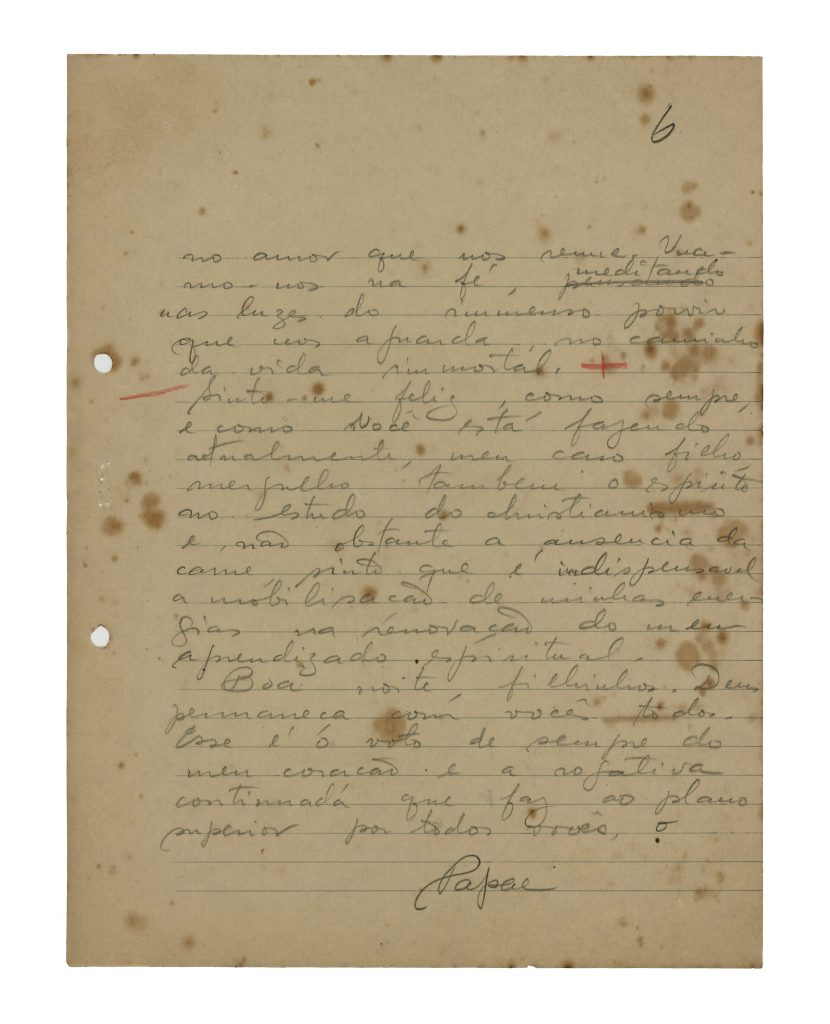 6
no amor que nos reune. Una-
mo-nos na fé, pensando meditando
nas luzes do immenso porvir
que nos aguarda, no caminho
da vida immortal. +
Sinto-me feliz, como sempre,
e como você está fazendo
actualmente, meu caro filho,
mergulho tambem o espirito
no estudo do christianismo
e, não obstante a ausencia da
carne, sinto que é indispensavel
a mobilisacão de minhas ener-
gias na renovacão do meu
aprendizado espiritual.
Boa noite, filhinhos. Deus
permaneca com vocês todos.
Esse é o voto de sempre do
meu coracão e a rogativa
continuada que faz ao plano
superior por todos vocês, o
Papae